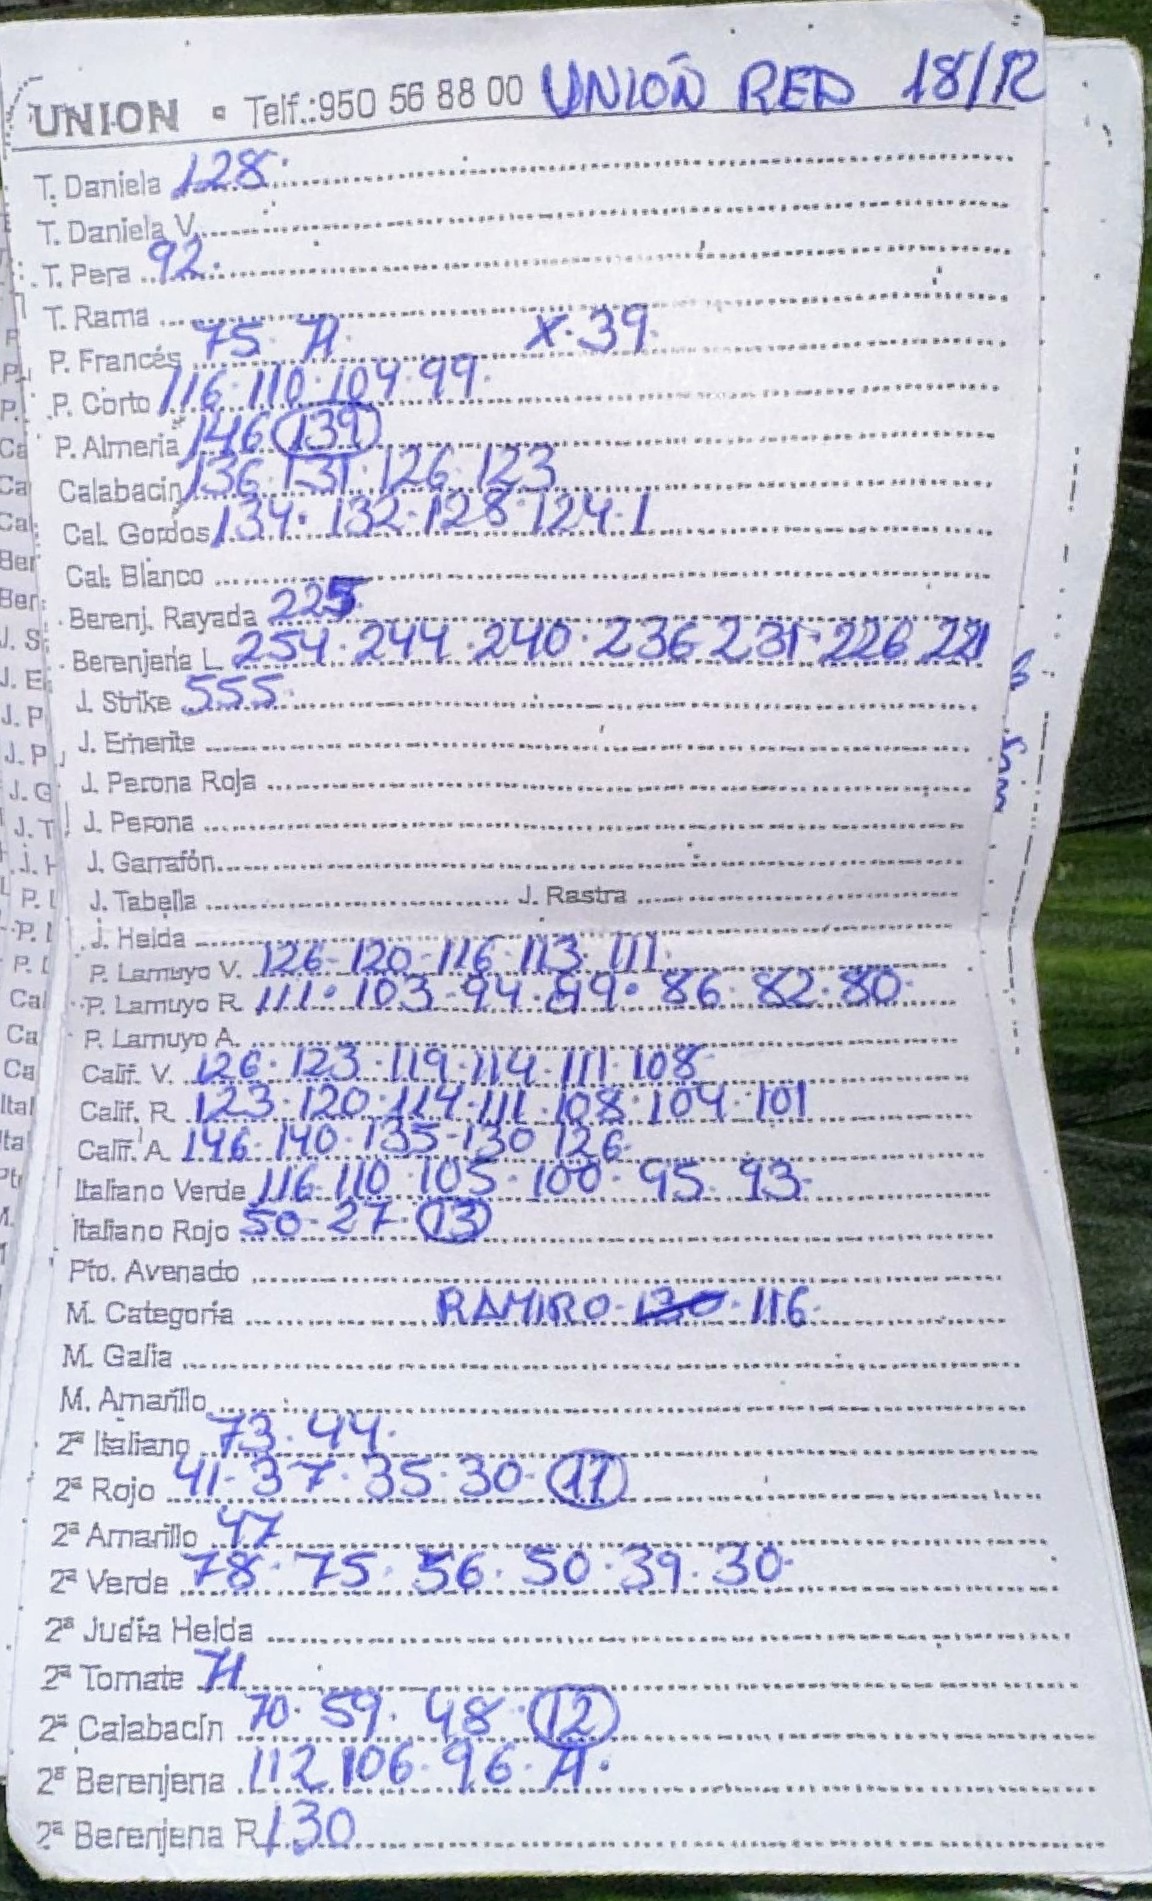 UNION ▫ Telf.:950 56 88 00 UNIÓN RED 18/12
T. Daniela 128.
T. Daniela V.
T. Pera 92.
T. Rama
P. Francés 75. 71. X. 39.
P. Corto 116. 110. 104. 99.
P. Almería 146 (139)
Calabacín 136. 131. 126. 123
Cal. Gordos 134. 132. 128. 124. 1
Cal. Blanco
Berenj. Rayada 225
Berenjena L. 254. 244. 240. 236 231. 226 221
J. Strike 555.
J. Emerite
J. Perona Roja
J. Perona
J. Garrafón
J. Tabella J. Rastra
J. Helda
P. Lamuyo V. 126- 120- 116. 113. 111.
P. Lamuyo R. 111. 103. 94. 89. 86. 82. 80.
P. Lamuyo A.
Calif. V. 126. 123. 119. 114. 111. 108
Calif. R. 123. 120. 114. 111. 108. 104. 101
Calif. A. 146. 140. 135- 130 126.
Italiano Verde 116. 110. 105. 100. 95. 93.
Italiano Rojo 50. 27. (13)
Pto. Avenado
M. Categoría RAMIRO. 130. 116.
M. Galia
M. Amarillo
2ª Italiano 73. 44.
2ª Rojo 41. 37. 35. 30. (11)
2ª Amarillo 47
2ª Verde 78. 75. 56. 50. 39. 30.
2ª Judía Helda
2ª Tomate 71
2ª Calabacín 70. 59. 48. (12)
2ª Berenjena 112 106. 96. 71.
2ª Berenjena R 130